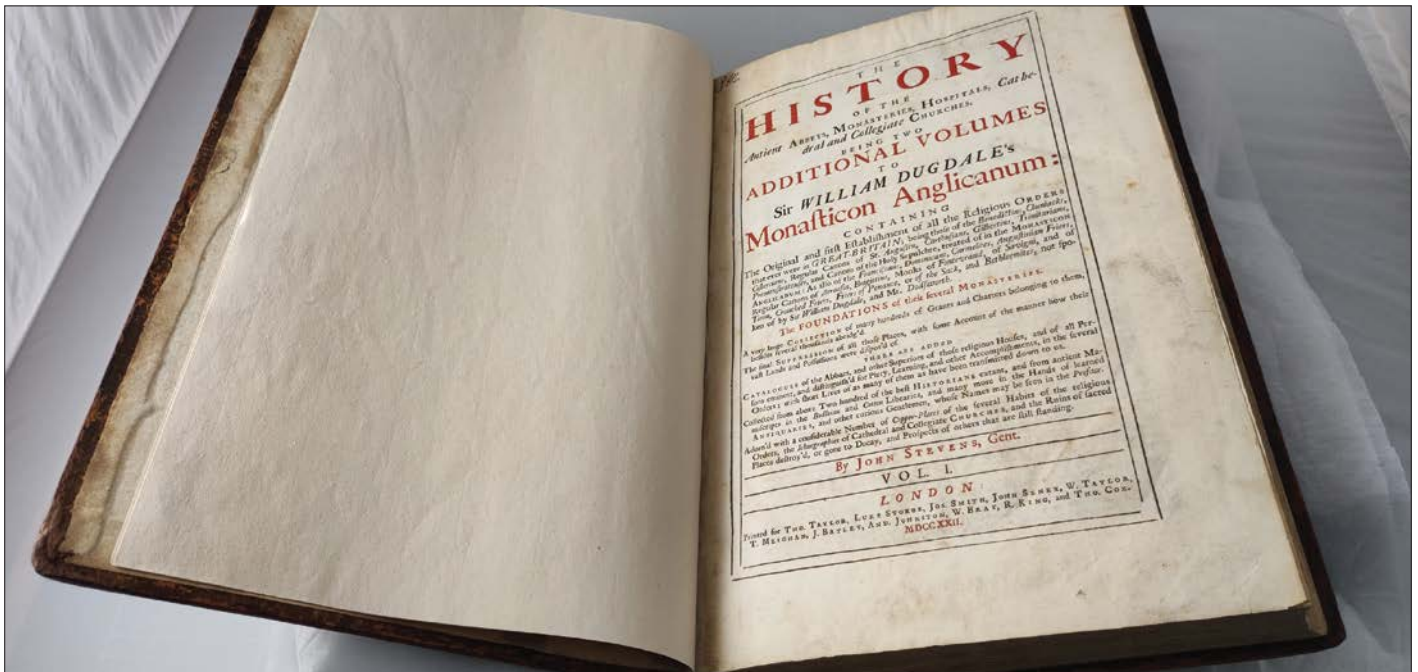 THE
HISTORY
OF THE
Antient ABBEYS, MONASTERIES, HOSPITALS, Cathe-
dral and Collegiate CHURCHES.
BEING TWO
ADDITIONAL VOLUMES
TO
Sir WILLIAM DUGDALE's
Monaſticon Anglicanum:
CONTAINING
The Original and firſt Eſtabliſhment of all the Religious ORDERS
that ever were in GREAT-BRITAIN; being thoſe of the Benedictins, Cluniacks,
Ciſtercians, Regular Canons of St. Auguſtin, Carthuſians, Gilbertins, Trinitarians,
Premonſtratenſes, and Canons of the Holy Sepulchre, treated of in the MONASTICON
ANGLICANUM: As alſo of the Franciſcans, Dominicans, Carmelites, Auguſtinian Friers,
Regular Canons of Arroaſia, Brigittins, Monks of Fontevraud, of Savigni, and of
Tiron, Crouched Friers, Friers of Penance, or of the Sack, and Bethleemites, not ſpo-
ken of by Sir William Dugdale, and Mr. Dodſworth.
The FOUNDATIONS of their ſeveral MONASTERIES.
A very large COLLECTION of many hundreds of Grants and Charters belonging to them,
beſides ſeveral thouſands abridg'd.
The final SUPPRESSION of all thoſe Places, with ſome Account of the manner how their
vaſt Lands and Poſſeſſions were diſpos'd of.
THERE ARE ADDED
CATALOGUES of the Abbats, and other Superiors of thoſe religious Houſes, and of all Per-
ſons eminent, and diſtinguiſh'd for Piety, Learning, and other Accompliſhments, in the ſeveral
Orders; with ſhort Lives of as many of them as have been tranſmitted down to us.
Collected from above Two hundred of the beſt HISTORIANS extant, and from antient Ma-
nuſcripts in the Bodleian and Cotton Libraries, and many more in the Hands of learned
ANTIQUARIES, and other curious Gentlemen, whoſe Names may be ſeen in the Preface.
Adorn'd with a conſiderable Number of Copper-Plates of the ſeveral Habits of the religious
Orders, the Ichnographies of Cathedral and Collegiate CHURCHES, and the Ruins of ſacred
Places deſtroy'd, or gone to Decay, and Proſpects of others that are ſtill ſtanding.
By JOHN STEVENS, Gent.
VOL. I.
LONDON:
Printed for THO. TAYLOR, LUKE STOKOE, JOS. SMITH, JOHN SENEX, W. TAYLOR,
T. MEIGHAN, J. BATLEY, AND. JOHNSTON, W. BRAY, R. KING, and THO. COX.
MDCCXXII.